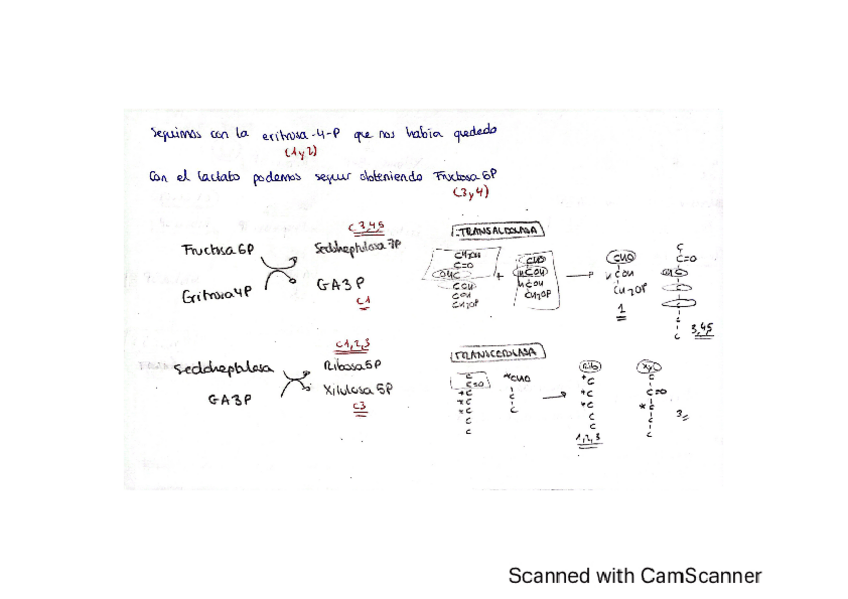 Seguimos con la eritrosa-4-P que nos había quedado
(1 y 2)
Con el lactato podemos seguir obteniendo Fructosa 6P
(3 y 4)
C3,4,5
TRANSALDOLASA
Fructosa 6P
Sedoheptulosa 7P
Eritrosa 4P
GA3P
C1
CH2OH
C=O
CHO
HCOH
CH2OP
+
CHO
HCOH
HCOH
CH2OP
CHO
COH
CH2OP
1
C
C=O
3,4,5
C1,2,3
TRANSCETOLASA
Sedoheptulosa
Ribosa 5P
GA3P
Xilulosa 5P
C3
C
C=O
*C
*C
*C
C
C
*CHO
C
C
Ribo
*C
*C
*C
C
C
1,2,3
Xyl
C
C=O
*C
C
C
3
Scanned with CamScanner